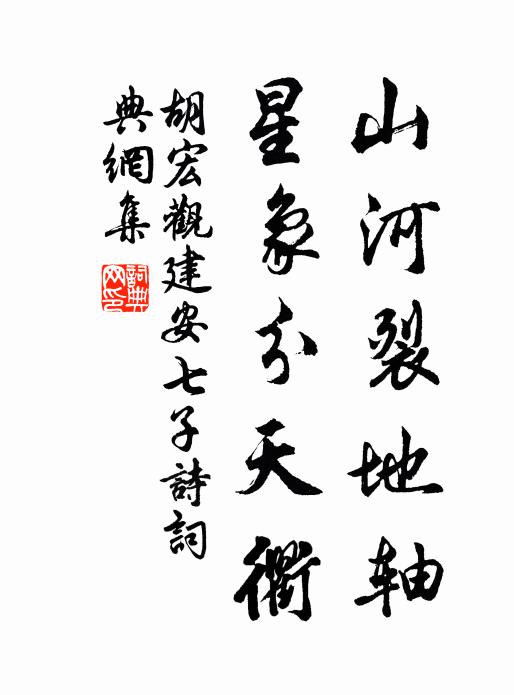 山河裂地軸
星象分天衢
胡宏觀建安七子詩詞
典網集
詞典
网印